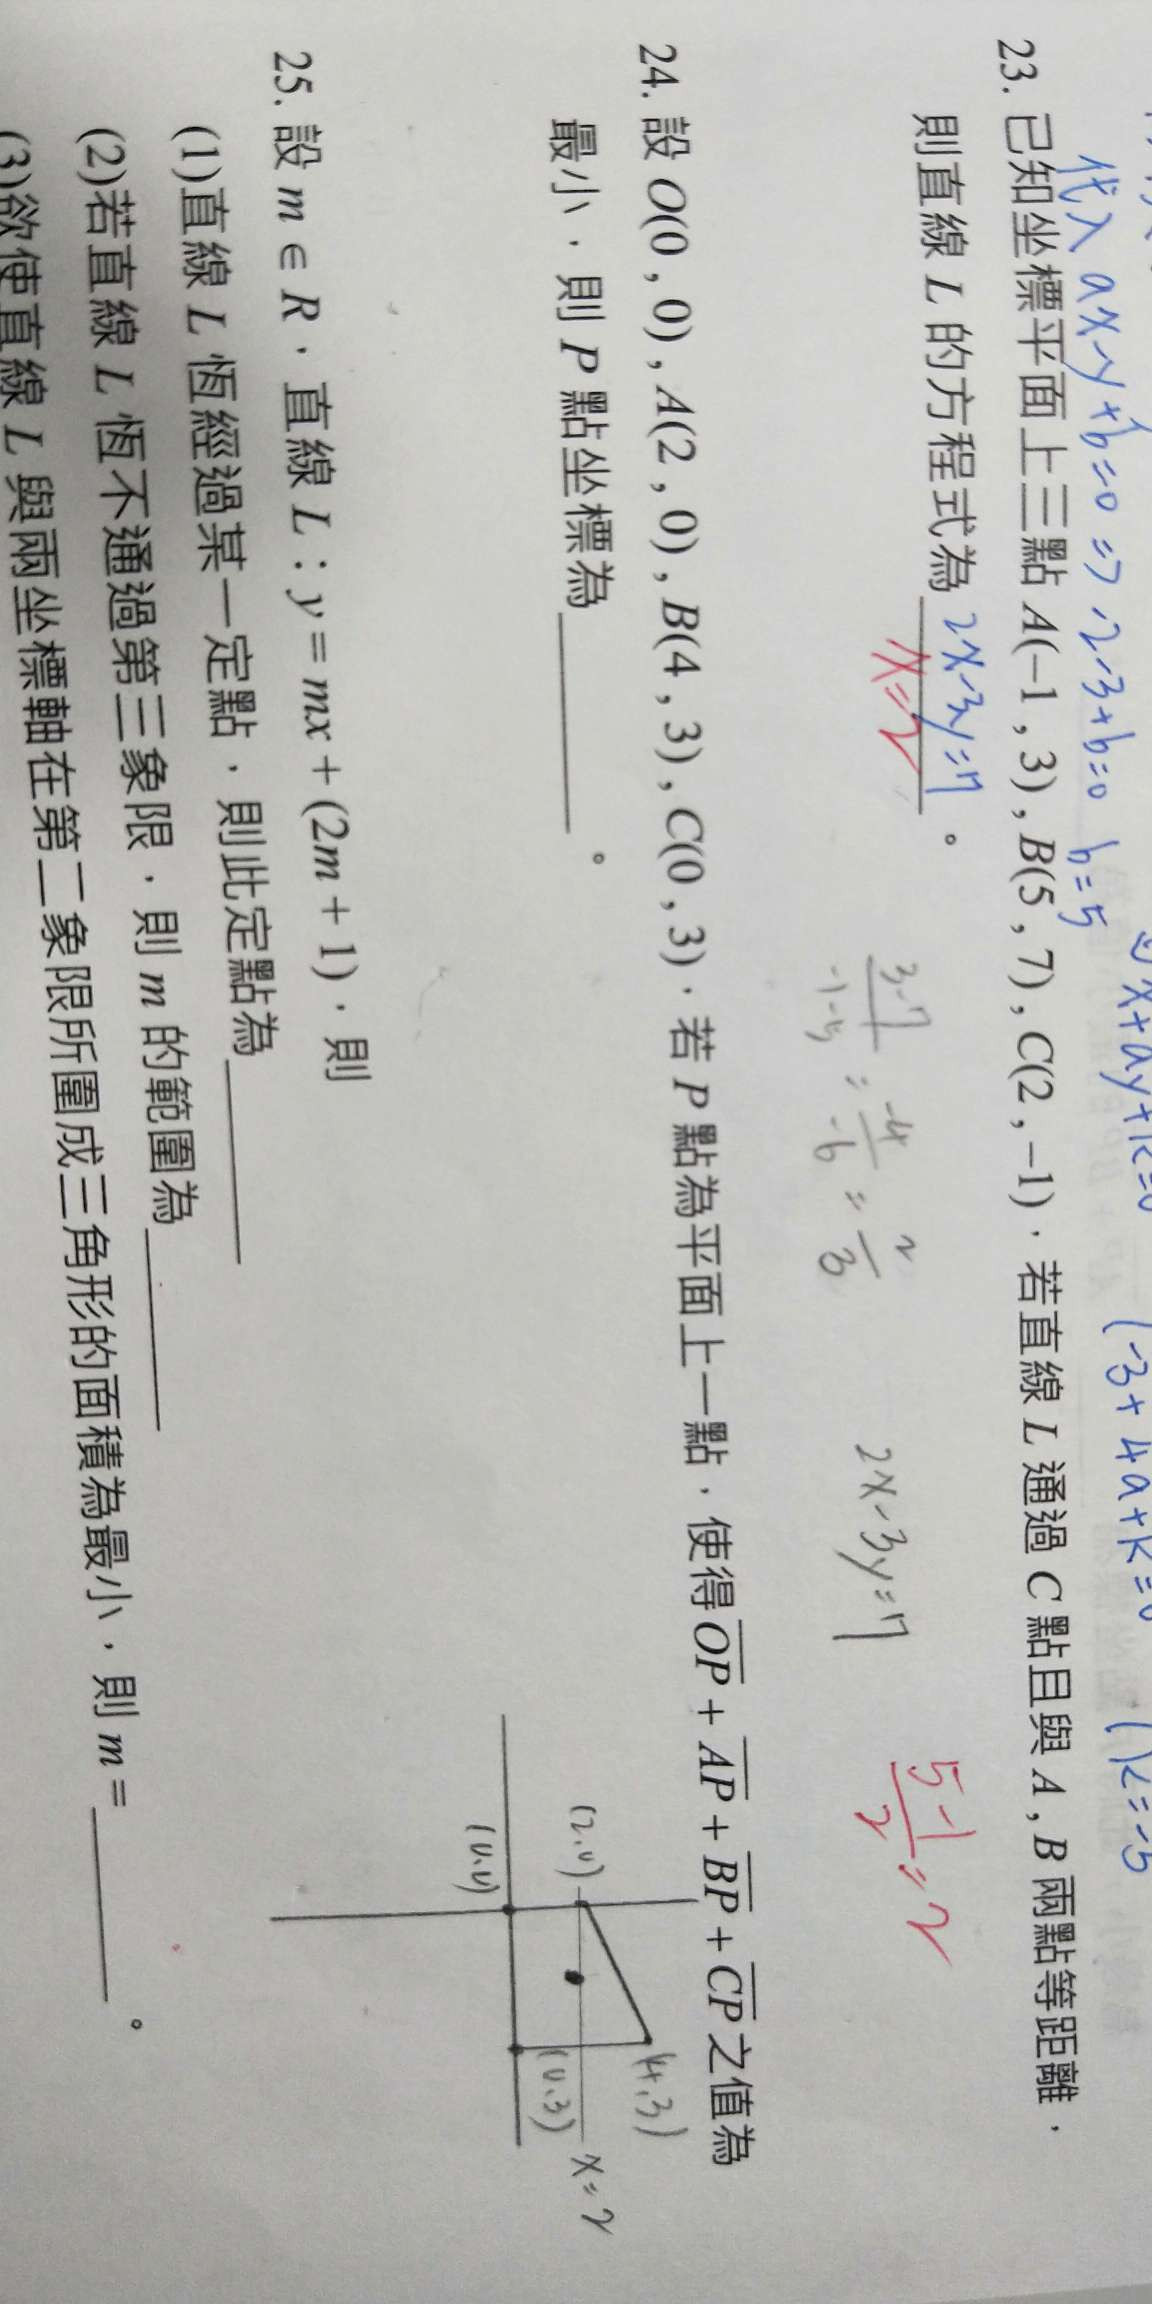 代入 ax-y+b=0 => -2-3+b=0 b=5
x+ay+k=0
(-3+4a+k=0
(k=-5
23. 已知坐標平面上三點 A(-1 , 3) , B(5 , 7) , C(2 , -1)，若直線 L 通過 C 點且與 A , B 兩點等距離，
則直線 L 的方程式為 2x-3y=7 。
x=2
3-7/-1-5 = -4/-6 = 2/3
2x-3y=7
5-1/2=2
24. 設 O(0 , 0) , A(2 , 0) , B(4 , 3) , C(0 , 3)，若 P 點為平面上一點，使得 OP + AP + BP + CP 之值為
最小，則 P 點坐標為 ＿＿＿＿ 。
(2.0)
(0.0)
(4.3)
(0.3)
x=2
25. 設 m ∈ R，直線 L : y = mx + (2m + 1)，則
(1)直線 L 恆經過某一定點，則此定點為 ＿＿＿＿
(2)若直線 L 恆不通過第三象限，則 m 的範圍為 ＿＿＿＿
(3)欲使直線 L 與兩坐標軸在第二象限所圍成三角形的面積為最小，則 m = ＿＿＿＿ 。